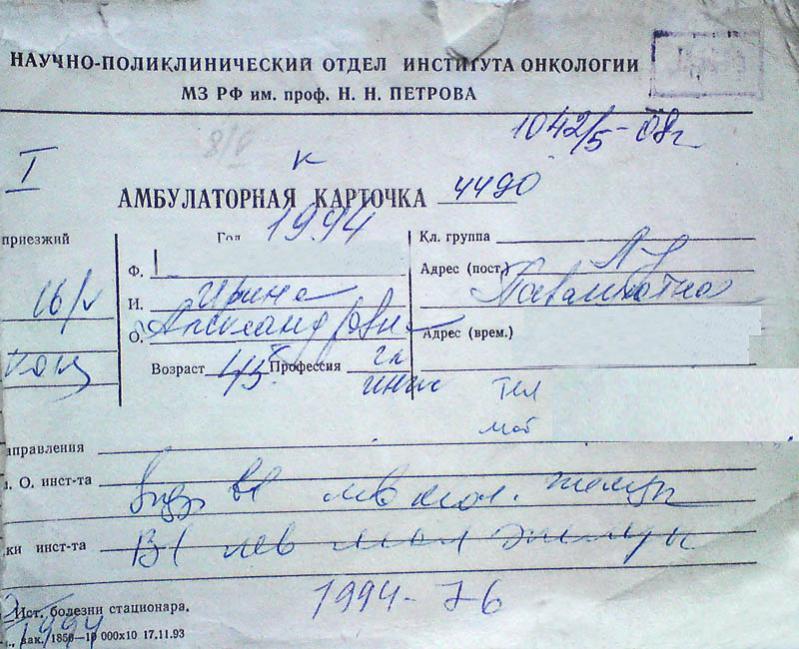 НАУЧНО-ПОЛИКЛИНИЧЕСКИЙ ОТДЕЛ ИНСТИТУТА ОНКОЛОГИИ
МЗ РФ им. проф. Н. Н. ПЕТРОВА
1042/5-08г
I
К
АМБУЛАТОРНАЯ КАРТОЧКА 4490
приезжий
Год 1994
Кл. группа
Ф.
Адрес (пост.)
16/V
И. Ирина
О. Александровна
Адрес (врем.)
Возраст 45 Профессия гл
инж
тел
моб
аправления
. О. инст-та
лев мол. железы
ки инст-та Bl лев мол железы
1994-76
Ист. болезни стационара.
1994
зак. 1850—10 000х10 17.11.93